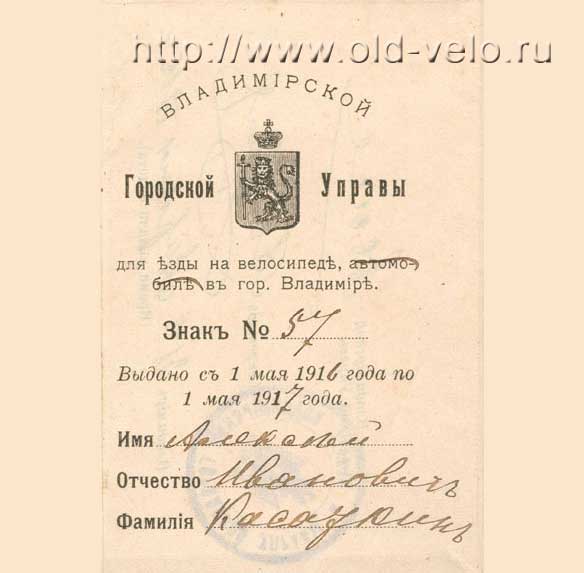 http://www.old-velo.ru
ВЛАДИМІРСКОЙ
Городской Управы
для ѣзды на велосипедѣ, автомо-
билѣ въ гор. Владимірѣ.
Знакъ № 57
Выдано съ 1 мая 1916 года по
1 мая 1917 года.
Имя Алексѣй
Отчество Ивановичъ
Фамилія Касаткинъ